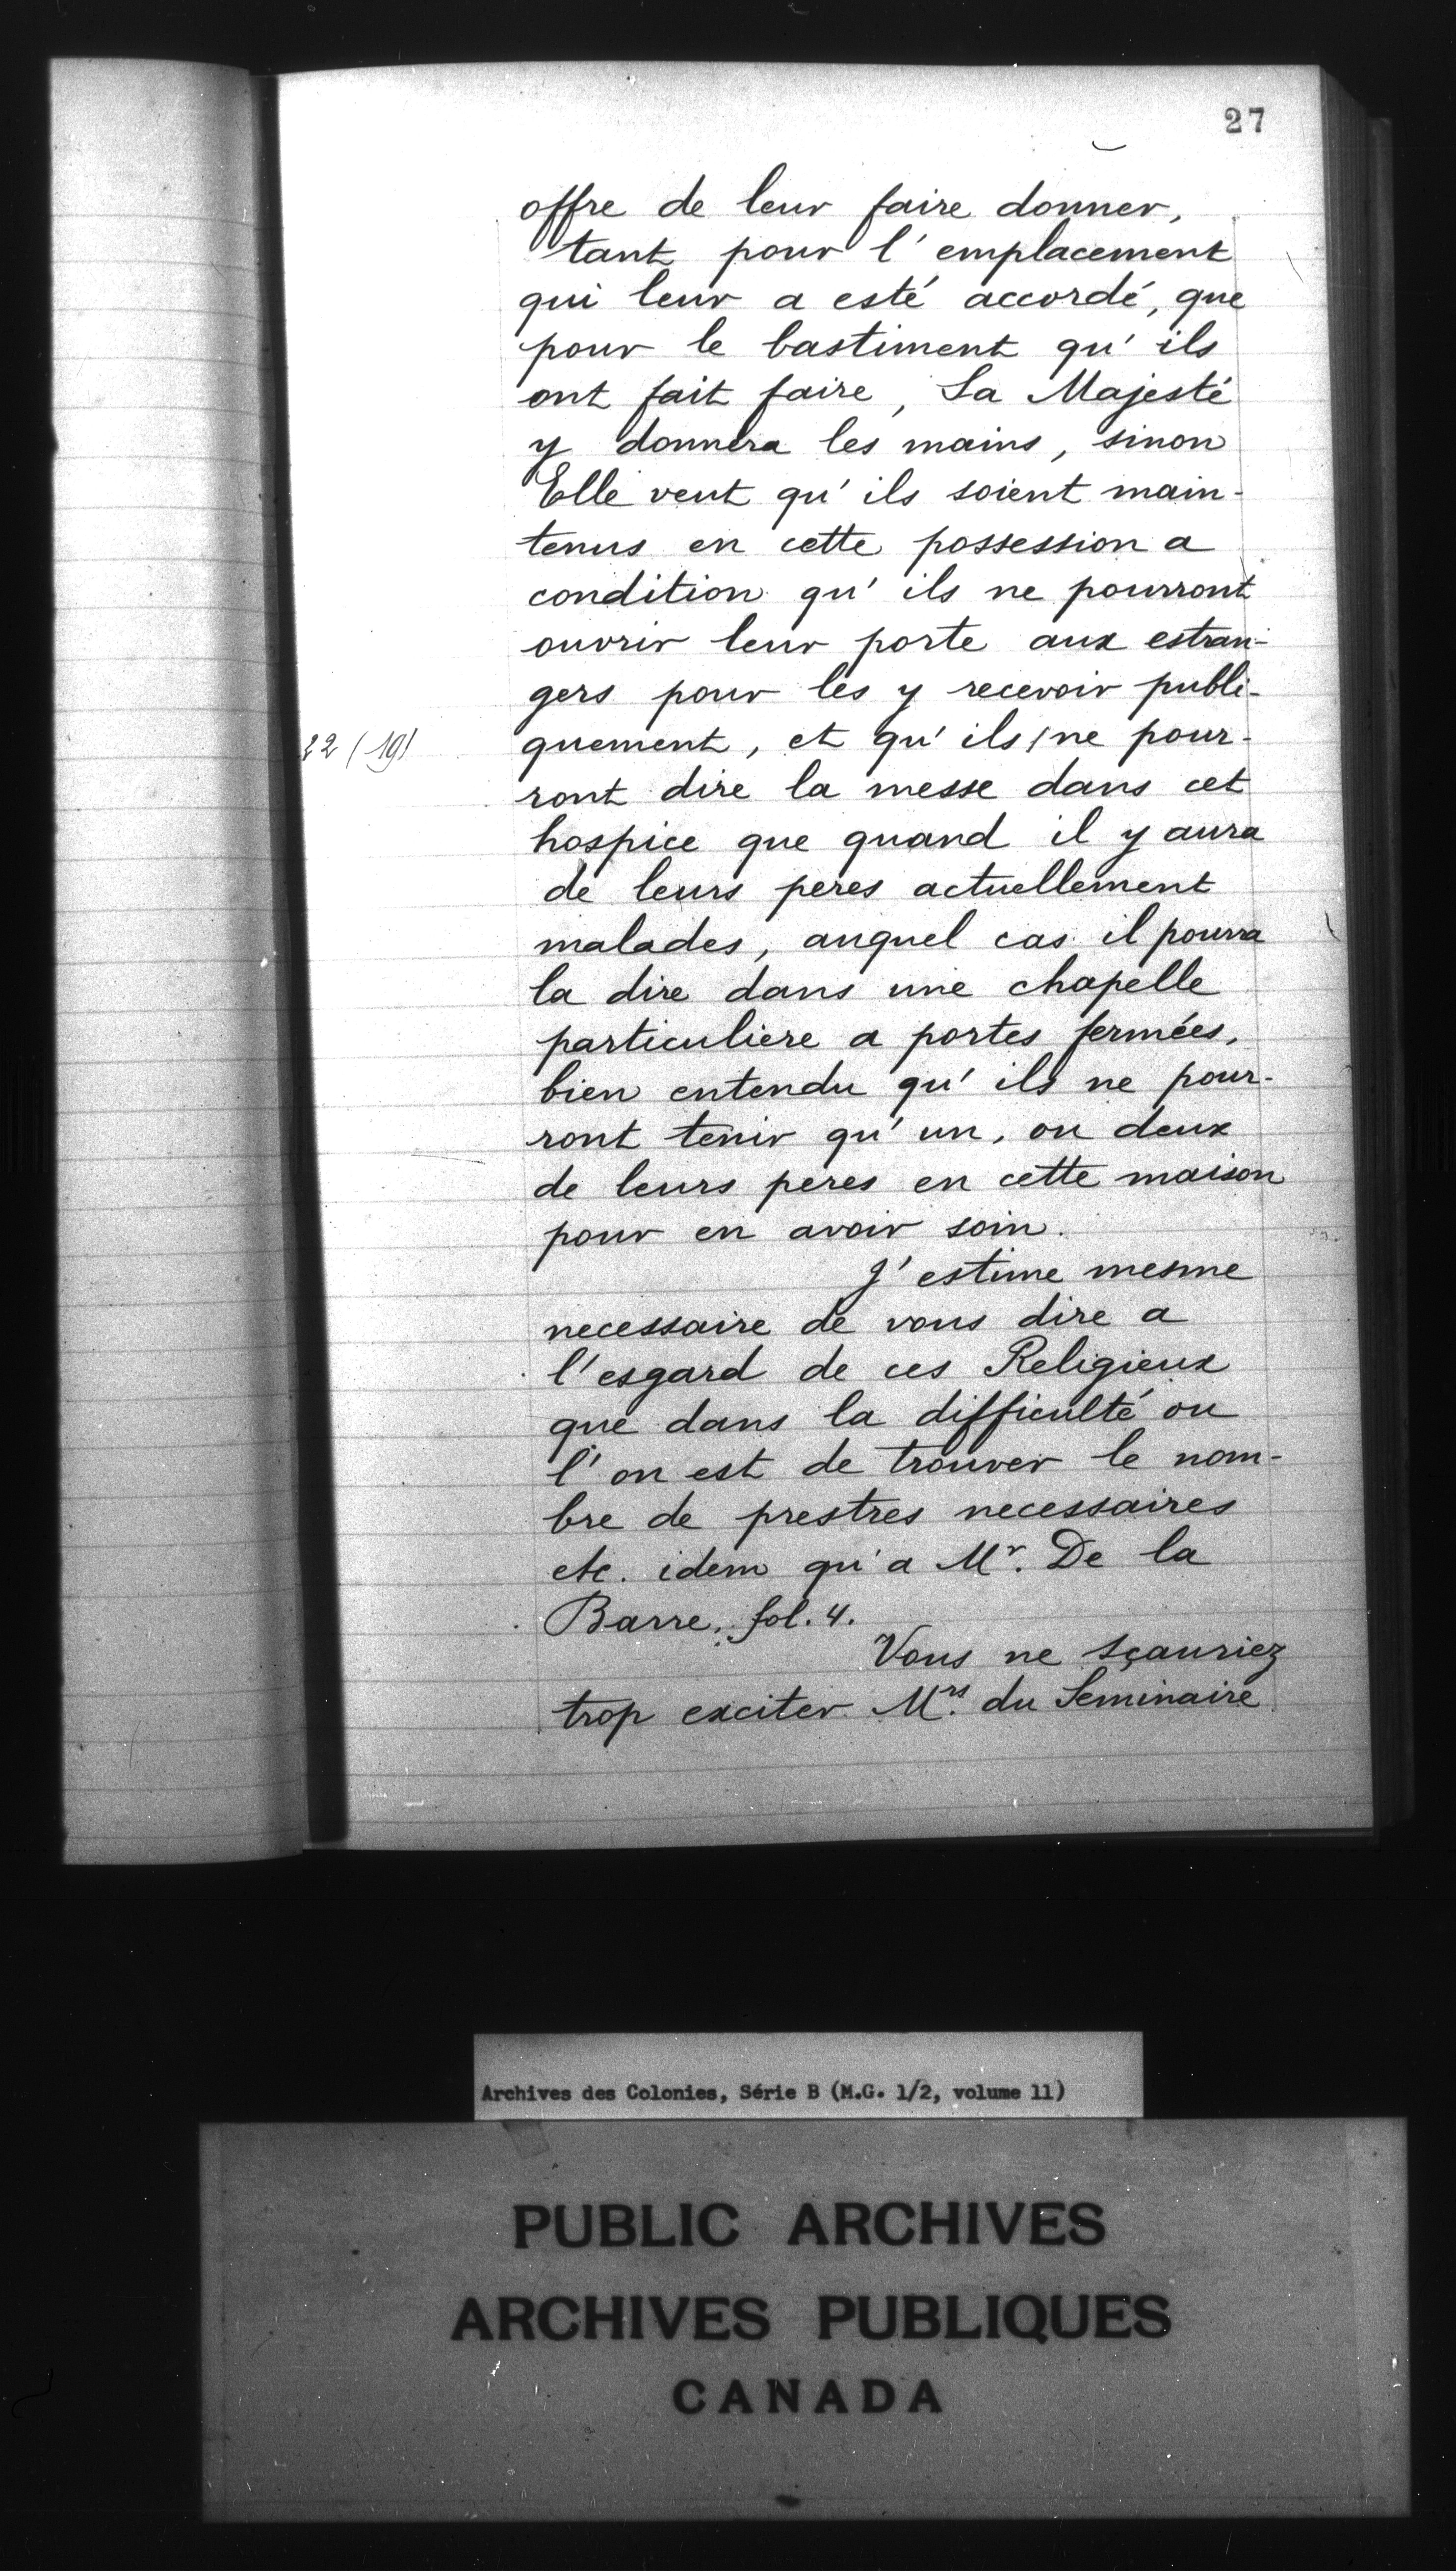 27
offre de leur faire donner,
tant pour l'emplacement
qui leur a esté accordé, que
pour le bastiment qu'ils
ont fait faire, Sa Majesté
y donnera les mains, sinon
Elle veut qu'ils soient main-
tenus en cette possession a
condition qu'ils ne pourront
ouvrir leur porte aux estran-
gers pour les y recevoir publi-
22 (19) quement, et qu'ils / ne pour-
ront dire la messe dans cet
hospice que quand il y aura
de leurs peres actuellement
malades, auquel cas il pourra
la dire dans une chapelle
particuliere a portes fermées,
bien entendu qu'ils ne pour-
ront tenir qu'un, ou deux
de leurs peres en cette maison
pour en avoir soin.
J'estime mesme
necessaire de vous dire a
l'esgard de ces Religieux
que dans la difficulté ou
l'on est de trouver le nom-
bre de prestres necessaires
etc. idem qu'a Mr. De la
Barre, fol. 4.
Vous ne sçauriez
trop exciter Mrs. du Seminaire
Archives des Colonies, Série B (M.G. 1/2, volume 11)
PUBLIC ARCHIVES
ARCHIVES PUBLIQUES
CANADA